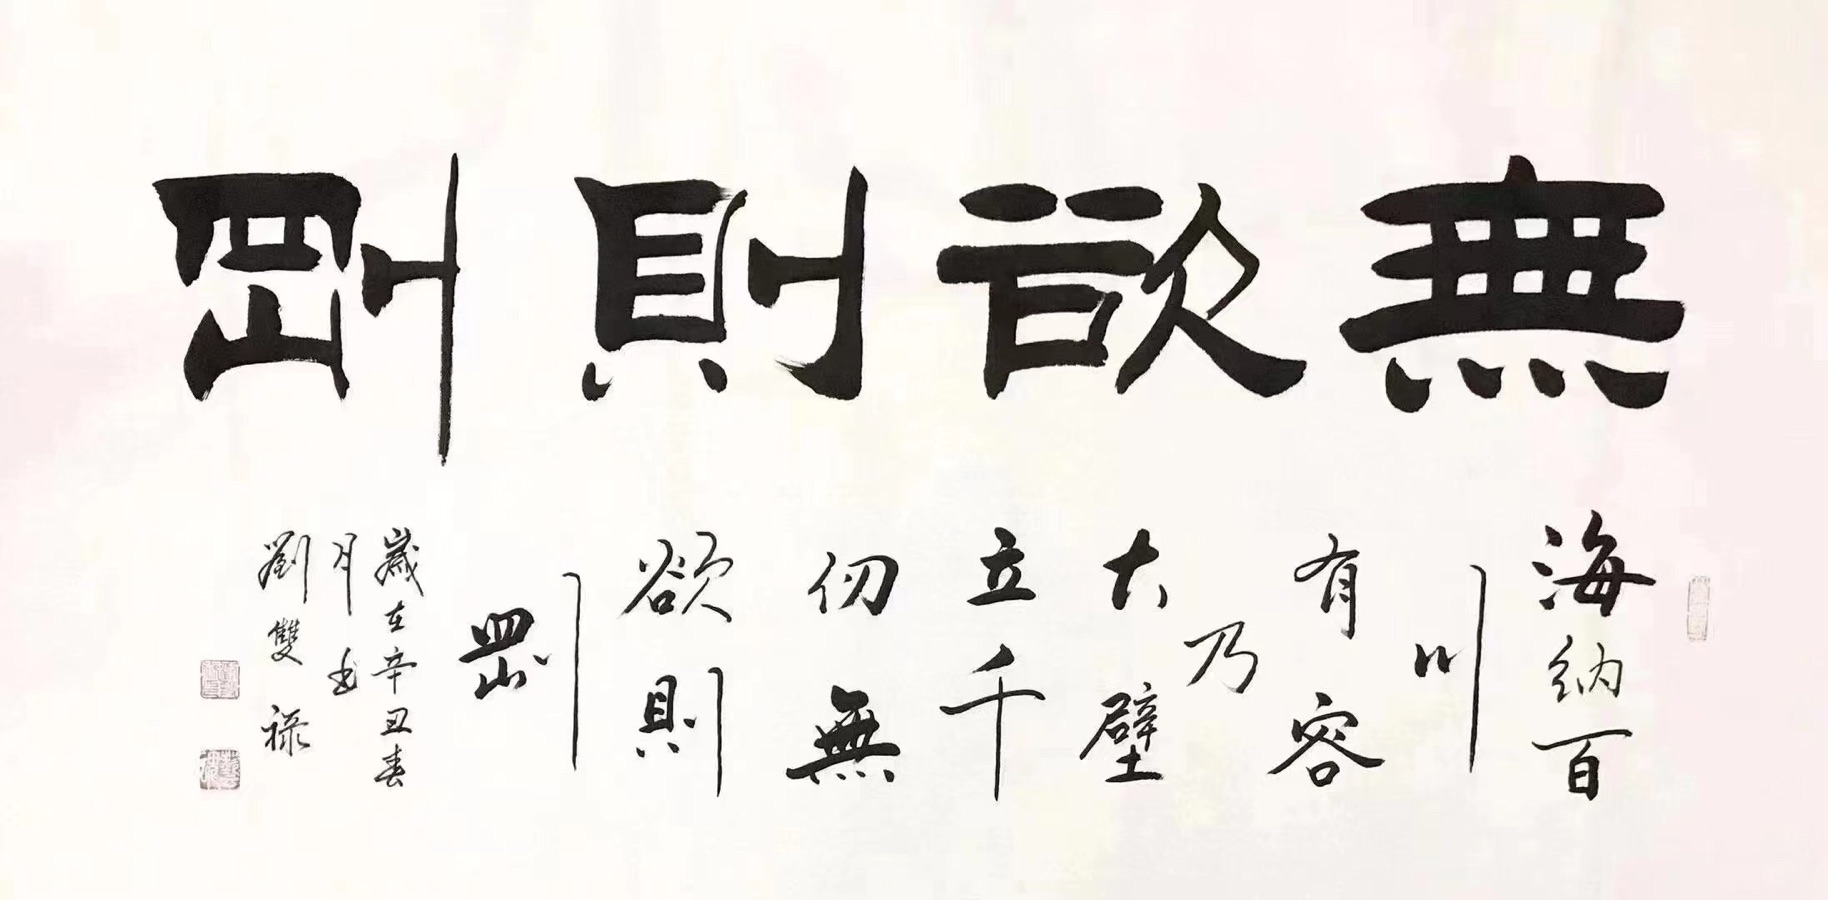 無欲則剛
海納百
川
有容
乃
大壁
立千
仞無
欲則
剛
歲在辛丑春
月書
劉雙祿